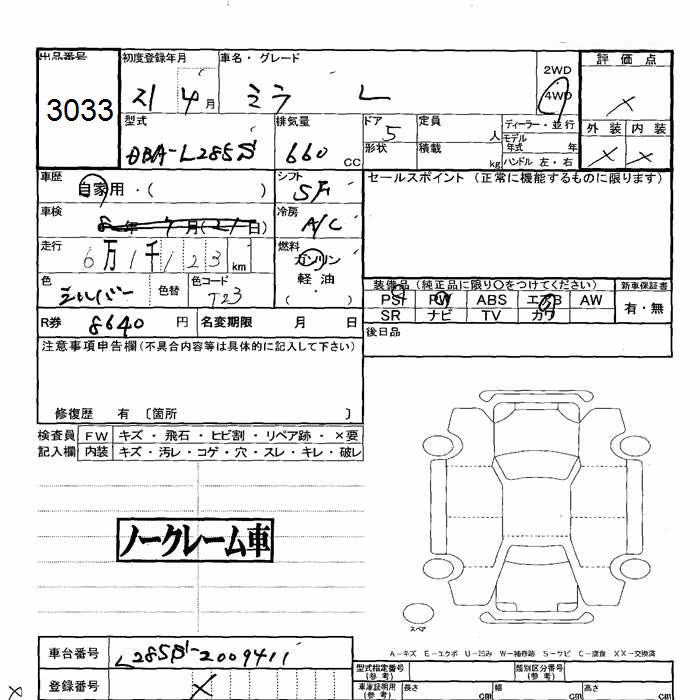 出品番号 初度登録年月 車名・グレード 2WD 評価点
3033 21 4月 ミラ L 4WD ×
型式 排気量 ドア 定員 ディーラー・並行 外装 内装
DBA-L285S 660 CC 5 人 モデル年式 年 × ×
形状 積載 kg ハンドル 左・右
車歴 シフト セールスポイント(正常に機能するものに限ります)
自家用・( ) 5F
車検 冷房
年 月(21日) A/C
走行 燃料
6万1千123km ガソリン
色 色替 色コード 軽油
シルバー T23 ( )
装備品(純正品に限り○をつけてください) 新車保証書
PS PW ABS エアB AW 有・無
SR ナビ TV カワ
R券 8640円 名変期限 月 日
後日品
注意事項申告欄(不具合内容等は具体的に記入して下さい)
修復歴 有 〔箇所 〕
検査員 FW キズ・飛石・ヒビ割・リペア跡・×要
記入欄 内装 キズ・汚レ・コゲ・穴・スレ・キレ・破レ
ノークレーム車
スペア
A-キズ E-エクボ U-凹み W-補修跡 S-サビ C-腐食 XX-交換済
車台番号 L285S-2009411
型式指定番号(参考) 類別区分番号(参考)
登録番号 ×
車庫証明用(参考) 長さ cm 幅 cm 高さ cm